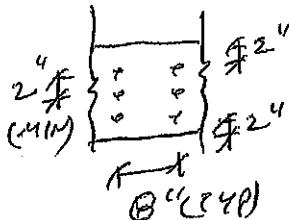 2"
2"
(MIN)
2"
8"(TYP)